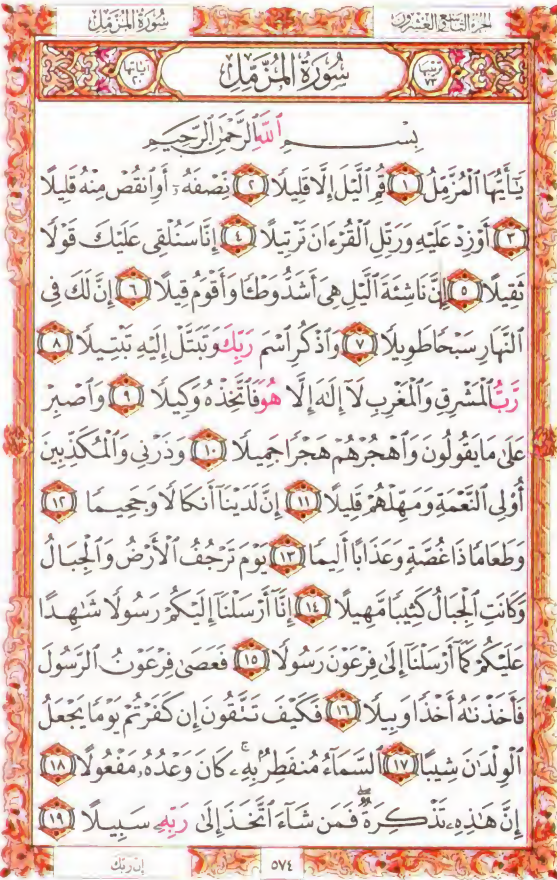 الجزء التاسع والعشرون
سُورَةُ المُزَّمِّلِ
ترتيبها ٧٣
سُورَةُ المُزَّمِّلِ
آياتها ٢٠
بِسْمِ اللَّهِ الرَّحْمَٰنِ الرَّحِيمِ
يَٰٓأَيُّهَا ٱلْمُزَّمِّلُ ١ قُمِ ٱلَّيْلَ إِلَّا قَلِيلًا ٢ نِّصْفَهُۥٓ أَوِ ٱنقُصْ مِنْهُ قَلِيلًا
٣ أَوْ زِدْ عَلَيْهِ وَرَتِّلِ ٱلْقُرْءَانَ تَرْتِيلًا ٤ إِنَّا سَنُلْقِى عَلَيْكَ قَوْلًا
ثَقِيلًا ٥ إِنَّ نَاشِئَةَ ٱلَّيْلِ هِىَ أَشَدُّ وَطْـًٔا وَأَقْوَمُ قِيلًا ٦ إِنَّ لَكَ فِى
ٱلنَّهَارِ سَبْحًا طَوِيلًا ٧ وَٱذْكُرِ ٱسْمَ رَبِّكَ وَتَبَتَّلْ إِلَيْهِ تَبْتِيلًا ٨
رَّبُّ ٱلْمَشْرِقِ وَٱلْمَغْرِبِ لَآ إِلَٰهَ إِلَّا هُوَ فَٱتَّخِذْهُ وَكِيلًا ٩ وَٱصْبِرْ
عَلَىٰ مَا يَقُولُونَ وَٱهْجُرْهُمْ هَجْرًا جَمِيلًا ١٠ وَذَرْنِى وَٱلْمُكَذِّبِينَ
أُو۟لِى ٱلنَّعْمَةِ وَمَهِّلْهُمْ قَلِيلًا ١١ إِنَّ لَدَيْنَآ أَنكَالًا وَجَحِيمًا ١٢
وَطَعَامًا ذَا غُصَّةٍ وَعَذَابًا أَلِيمًا ١٣ يَوْمَ تَرْجُفُ ٱلْأَرْضُ وَٱلْجِبَالُ
وَكَانَتِ ٱلْجِبَالُ كَثِيبًا مَّهِيلًا ١٤ إِنَّآ أَرْسَلْنَآ إِلَيْكُمْ رَسُولًا شَٰهِدًا
عَلَيْكُمْ كَمَآ أَرْسَلْنَآ إِلَىٰ فِرْعَوْنَ رَسُولًا ١٥ فَعَصَىٰ فِرْعَوْنُ ٱلرَّسُولَ
فَأَخَذْنَٰهُ أَخْذًا وَبِيلًا ١٦ فَكَيْفَ تَتَّقُونَ إِن كَفَرْتُمْ يَوْمًا يَجْعَلُ
ٱلْوِلْدَٰنَ شِيبًا ١٧ ٱلسَّمَآءُ مُنفَطِرٌۢ بِهِۦ ۚ كَانَ وَعْدُهُۥ مَفْعُولًا ١٨
إِنَّ هَٰذِهِۦ تَذْكِرَةٌ ۖ فَمَن شَآءَ ٱتَّخَذَ إِلَىٰ رَبِّهِۦ سَبِيلًا ١٩
٥٧٤
إن ربك